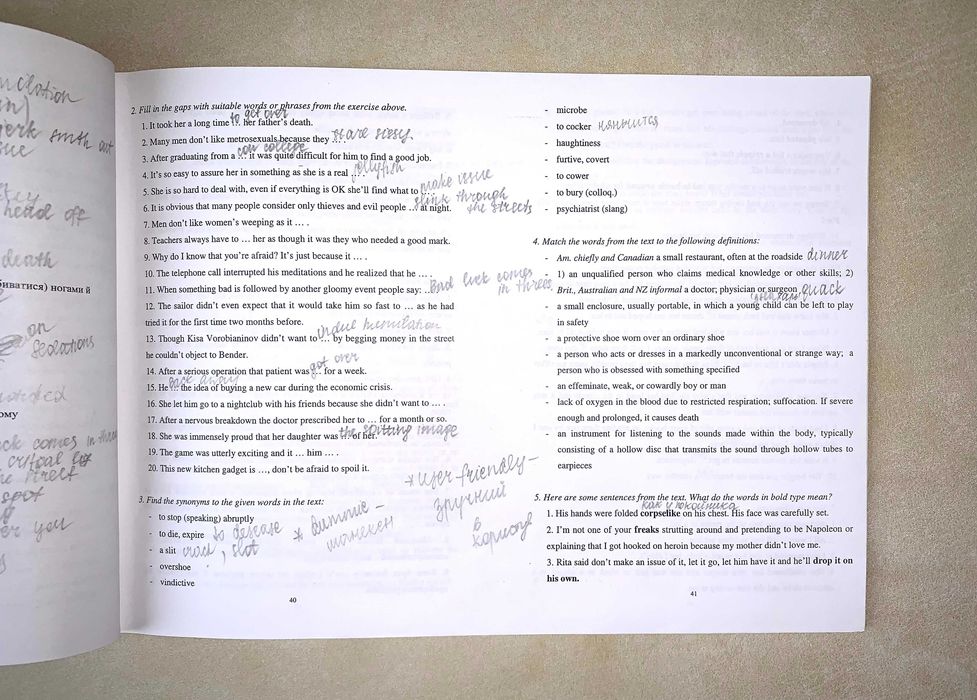 ncilation
jerk smth out
head off
death
биватися) ногами й
an
ому
ck comes in thre
critical
spot
er you
2. Fill in the gaps with suitable words or phrases from the exercise above.
to get over
1. It took her a long time … her father's death.
2. Many men don't like metrosexuals because they … .
cow college
3. After graduating from a … it was quite difficult for him to find a good job.
4. It's so easy to assure her in something as she is a real … jellyfish
5. She is so hard to deal with, even if everything is OK she'll find what to … make issue
slink through
6. It is obvious that many people consider only thieves and evil people … at night. the streets
7. Men don't like women's weeping as it … .
8. Teachers always have to … her as though it was they who needed a good mark.
9. Why do I know that you're afraid? It's just because it … .
10. The telephone call interrupted his meditations and he realized that he … .
11. When something bad is followed by another gloomy event people say: … Bad luck comes
in threes
12. The sailor didn't even expect that it would take him so fast to … as he had
tried it for the first time two months before.
13. Though Kisa Vorobianinov didn't want to … by begging money in the street
he couldn't object to Bender.
got over
14. After a serious operation that patient was … for a week.
back away
15. He … the idea of buying a new car during the economic crisis.
16. She let him go to a nightclub with his friends because she didn't want to … .
17. After a nervous breakdown the doctor prescribed her to … for a month or so.
18. She was immensely proud that her daughter was … of her. the spitting image
19. The game was utterly exciting and it … him … .
20. This new kitchen gadget is …, don't be afraid to spoil it.
* user-friendly –
зручний
3. Find the synonyms to the given words in the text:
- to stop (speaking) abruptly
- to die, expire to decease
- a slit crack, slot
- overshoe
- vindictive
* dummie –
манекен
в
40
- microbe
- to cocker няньчится
- haughtiness
- furtive, covert
- to cower
- to bury (colloq.)
- psychiatrist (slang)
4. Match the words from the text to the following definitions:
- Am. chiefly and Canadian a small restaurant, often at the roadside dinner
- 1) an unqualified person who claims medical knowledge or other skills; 2)
Brit., Australian and NZ informal a doctor; physician or surgeon quack
- a small enclosure, usually portable, in which a young child can be left to play
in safety
- a protective shoe worn over an ordinary shoe
- a person who acts or dresses in a markedly unconventional or strange way; a
person who is obsessed with something specified
- an effeminate, weak, or cowardly boy or man
- lack of oxygen in the blood due to restricted respiration; suffocation. If severe
enough and prolonged, it causes death
- an instrument for listening to the sounds made within the body, typically
consisting of a hollow disc that transmits the sound through hollow tubes to
earpieces
5. Here are some sentences from the text. What do the words in bold type mean?
как у покойника
1. His hands were folded corpselike on his chest. His face was carefully set.
2. I'm not one of your freaks strutting around and pretending to be Napoleon or
explaining that I got hooked on heroin because my mother didn't love me.
3. Rita said don't make an issue of it, let it go, let him have it and he'll drop it on
his own.
41